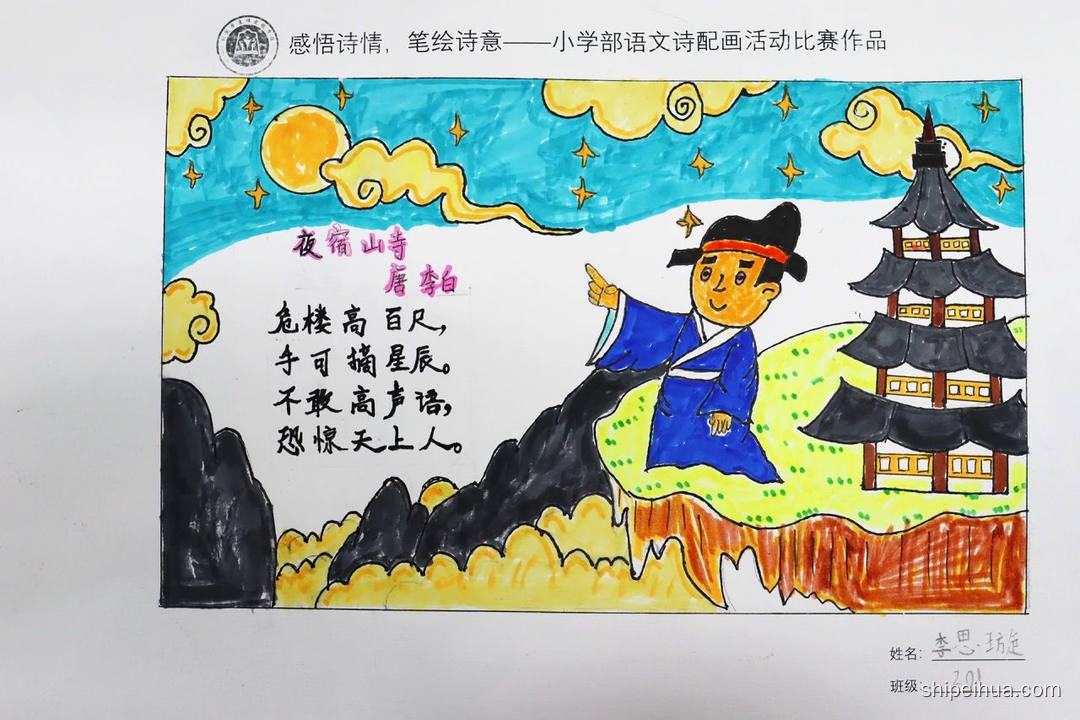 感悟诗情，笔绘诗意——小学部语文诗配画活动比赛作品
夜宿山寺
唐 李白
危楼高百尺，
手可摘星辰。
不敢高声语，
恐惊天上人。
姓名：李思
班级：201
shipeihua.com